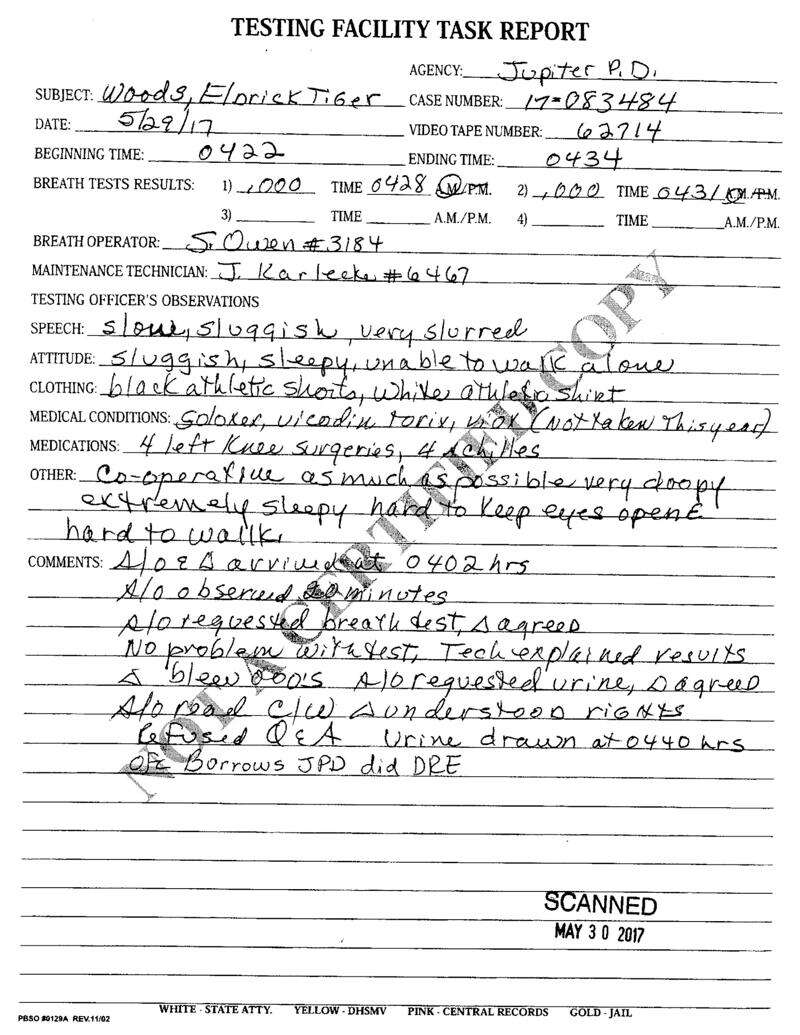 TESTING FACILITY TASK REPORT
AGENCY: Jupiter P.D.
SUBJECT: Woods, Eldrick Tiger CASE NUMBER: 17-083484
DATE: 5/29/17 VIDEO TAPE NUMBER: 62714
BEGINNING TIME: 0422 ENDING TIME: 0434
BREATH TESTS RESULTS: 1) .000 TIME 0428 A.M./P.M. 2) .000 TIME 0431 A.M./P.M.
3) TIME A.M./P.M. 4) TIME A.M./P.M.
BREATH OPERATOR: S. Owen #3184
MAINTENANCE TECHNICIAN: J. Karlecke #6467
TESTING OFFICER'S OBSERVATIONS
SPEECH: slow, sluggish, very slurred
ATTITUDE: sluggish, sleepy, unable to walk alone
CLOTHING: black athletic shorts, white athletic shirt
MEDICAL CONDITIONS: Soloxer, vicodin torix, viox (not taken this year)
MEDICATIONS: 4 left Knee surgeries, 4 achilles
OTHER: Co-operative as much as possible very doopy
extremely sleepy hard to keep eyes open &
hard to wallk
COMMENTS: A/O & Δ arrived at 0402 hrs
A/O observed 20 minutes
A/O requested breath test, Δ agreed
No problem with test, Tech explained results
Δ blew 000's A/O requested urine, Δ agreed
A/O read C/W Δ understood rights
Refused Q & A Urine drawn at 0440 hrs
Ofc Borrows JPD did DRE
NOT A CERTIFIED COPY
SCANNED
MAY 30 2017
PBSO #0129A REV.11/02 WHITE - STATE ATTY. YELLOW - DHSMV PINK - CENTRAL RECORDS GOLD - JAIL